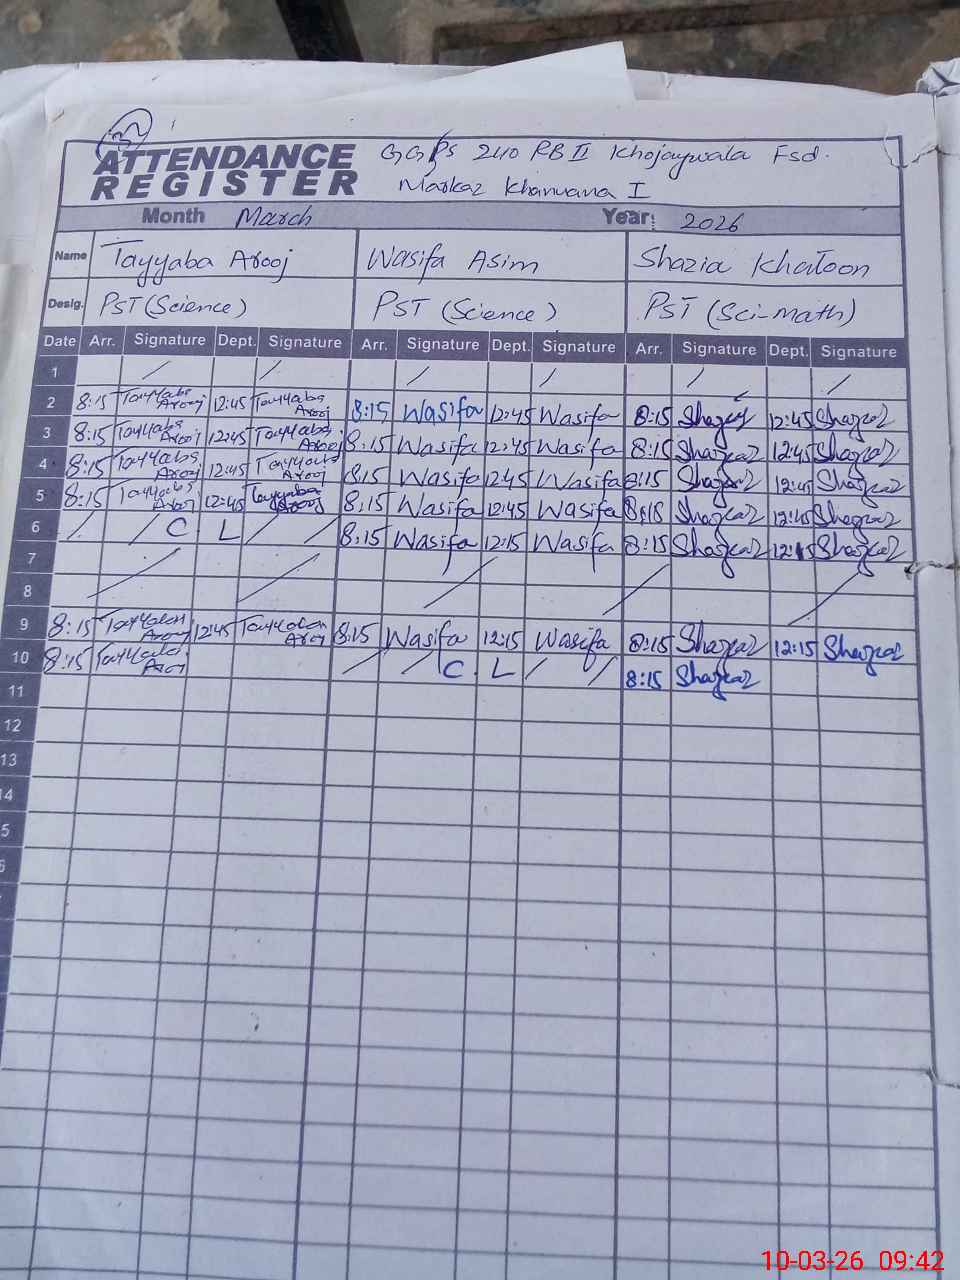 32
ATTENDANCE REGISTER
GGPS 240 RB II Khojaywala Fsd.
Markaz Khanuana I
Month March Year: 2026
Name Tayyaba Arooj Wasifa Asim Shazia Khatoon
Desig. PST (Science) PST (Science) PST (Sci-math)
Date Arr. Signature Dept. Signature Arr. Signature Dept. Signature Arr. Signature Dept. Signature
1
2 8:15 Tayyaba Arooj 12:45 Tayyaba Arooj 8:15 Wasifa 12:45 Wasifa 8:15 12:45
3 8:15 Tayyaba Arooj 12:45 Tayyaba Arooj 8:15 Wasifa 12:45 Wasifa 8:15 12:45
4 8:15 Tayyaba Arooj 12:45 Tayyaba Arooj 8:15 Wasifa 12:45 Wasifa 8:15 12:45
5 8:15 Tayyaba Arooj 12:45 Tayyaba Arooj 8:15 Wasifa 12:45 Wasifa 8:15 12:45
6 C L 8:15 Wasifa 12:15 Wasifa 8:15 12:15
7
8
9 8:15 Tayyaba Arooj 12:45 Tayyaba Arooj 8:15 Wasifa 12:15 Wasifa 8:15 12:15
10 8:15 Tayyaba Arooj C L 8:15
11
12
13
14
5
10-03-26 09:42